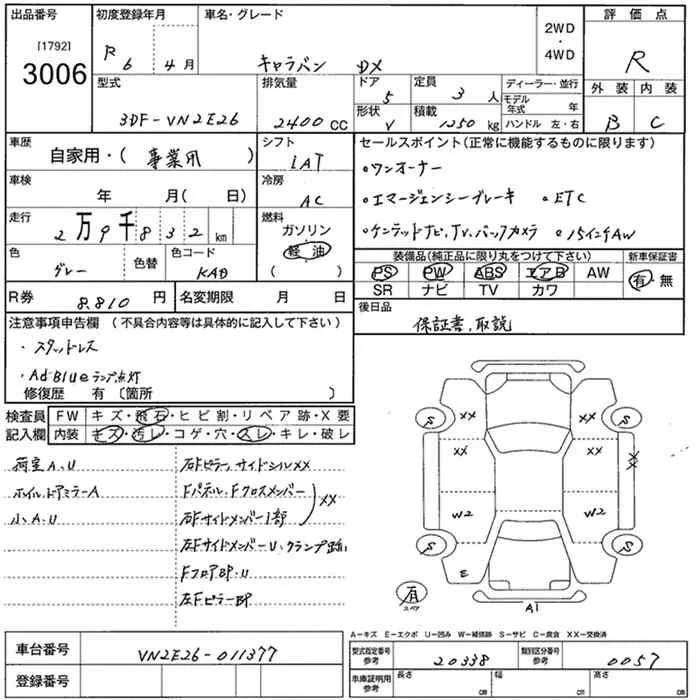 出品番号 初度登録年月 車名・グレード 評価点
[1792]
3006
R 6 4月 キャラバン DX
2WD
・
4WD
R
型式 排気量 ドア 定員 ディーラー・並行 外装 内装
3DF-VN2E26 2400cc 5 3人 モデル年式 年
形状 積載 ハンドル 左・右
V 1250kg B C
車歴 シフト セールスポイント(正常に機能するものに限ります)
自家用・(事業用) IAT
・ワンオーナー
車検 冷房
年 月(日) AC
・エマージェンシーブレーキ ・ETC
走行 燃料
2万9千832km ガソリン
・ケンテッドナビ,TV,バックカメラ ・15インチAW
軽油
( )
色 色替 色コード
グレー KAD
装備品(純正品に限り丸をつけて下さい) 新車保証書
PS PW ABS エアB AW 有・無
SR ナビ TV カワ
R券 8,810円 名変期限 月 日
後日品
保証書,取説
注意事項申告欄(不具合内容等は具体的に記入して下さい)
・スタッドレス
・AdBlueランプ点灯
修復歴 有〔箇所 〕
検査員 FW キズ・飛石・ヒビ割・リペア跡・X要
記入欄 内装 キズ・汚レ・コゲ・穴・スレ・キレ・破レ
荷室A.U 右Fピラー,サイドシルXX
ホイル,ドアミラーA Fパネル,Fクロスメンバー
XX
小A.U 右Fサイドメンバー1部
左FサイドメンバーU,クランプ跡
FフロアBP.U
左FピラーBP
XX XX
S S
XX XX XX
W2 W2
S S
E
有
スペア
A1
A-キズ E-エクボ U-凹み W-補修跡 S-サビ C-腐食 XX-交換済
車台番号 VN2E26-011377
登録番号
型式指定番号 参考 20338 類別区分番号 参考 0057
車庫証明用 参考 長さ cm 幅 cm 高さ cm